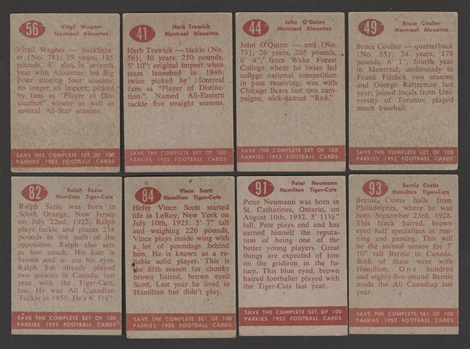 56
Virgil Wagner
Montreal Alouettes
Virgil Wagner — backfield-
er (No. 78); 29 years, 185
pounds,
with Alouettes; led Big
Four scoring four seasons;
no longer an import; picked
by teams as "Player of
Distinction" winner as well
as several All-Star seasons.
SAVE THE COMPLETE SET OF 100
PARKIES 1952 FOOTBALL CARDS
41
Herb Trawick
Montreal Alouettes
Herb Trawick — tackle (No.
56); 30 years, 250 pounds,
5' 10" original import when
team launched in 1946;
twice picked by Montreal
fans as "Player of Distinc-
tion". Named All-Eastern
tackle five straight seasons.
SAVE THE COMPLETE SET OF 100
PARKIES 1952 FOOTBALL CARDS
44
John O'Quinn
Montreal Alouettes
John O'Quinn — end, (No.
73); 26 years, 205 pounds,
6' 4"; from Wake Forest
College where he twice led
college national competition
in pass receiving; was with
Chicago Bears last two cam-
paigns; nick-named "Red."
SAVE THE COMPLETE SET OF 100
PARKIES 1952 FOOTBALL CARDS
49
Bruce Coulter
Montreal Alouettes
Bruce Coulter — quarterback
(No. 65); 24 years, 6', fourth
year in Montreal; understudy to
Frank Filchock two seasons
and George Ratterman last
year; joined club from Univer-
sity of Toronto; played much
baseball.
SAVE THE COMPLETE SET OF 100
PARKIES 1952 FOOTBALL CARDS
82
Ralph Sazio
Hamilton Tiger-Cats
Ralph Sazio was born in
South Orange, New Jersey
on July 22nd, 1922. Ralph
plays tackle and places 238
pounds in the path of the
opposition. Ralph also acts
as line coach. His hair is
brown and so are his eyes.
Ralph has already played
two seasons in Canada, last
year with the Tiger-Cats.
Sazio was All Canadian
Tackle in 1950. He's 6' 1½".
SAVE THE COMPLETE SET OF 100
PARKIES 1952 FOOTBALL CARDS
84
Vince Scott
Hamilton Tiger-Cats
Hefty Vince Scott started
life in LeRoy, New York on
July 10th, 1925. 5' 7" tall
and weighing 220 pounds,
Vince plays inside wing with
a lot of poundage behind
him. He is known as a re-
liable solid player. This is
the fifth season for chunky
brown haired, brown eyed
Scott. Last year he lived in
Hamilton but didn't play.
SAVE THE COMPLETE SET OF 100
PARKIES 1952 FOOTBALL CARDS
91
Peter Neumann
Hamilton Tiger-Cats
Peter Neumann was born in
St. Catharines, Ontario, on
August 10th, 1932. 5' 11½"
tall, Pete plays end and has
earned himself the reputa-
tion of being one of the
better young players. Great
things are expected of him
on the gridiron in the
future. This blue eyed, brown
haired footballer played with
the Tiger-Cats last year.
SAVE THE COMPLETE SET OF 100
PARKIES 1952 FOOTBALL CARDS
93
Bernie Custis
Hamilton Tiger-Cats
Bernie Custis hails from
Philadelphia, where he was
born September 23rd, 1928.
This brown haired, brown-
eyed player specializes in
running and passing. This will
be the second season of 5'
10" tall Bernie in Canada.
Both of these were with
Hamilton. One hundred
and eighty-five pound Bernie
made the All Canadian last
year.
SAVE THE COMPLETE SET OF 100
PARKIES 1952 FOOTBALL CARDS